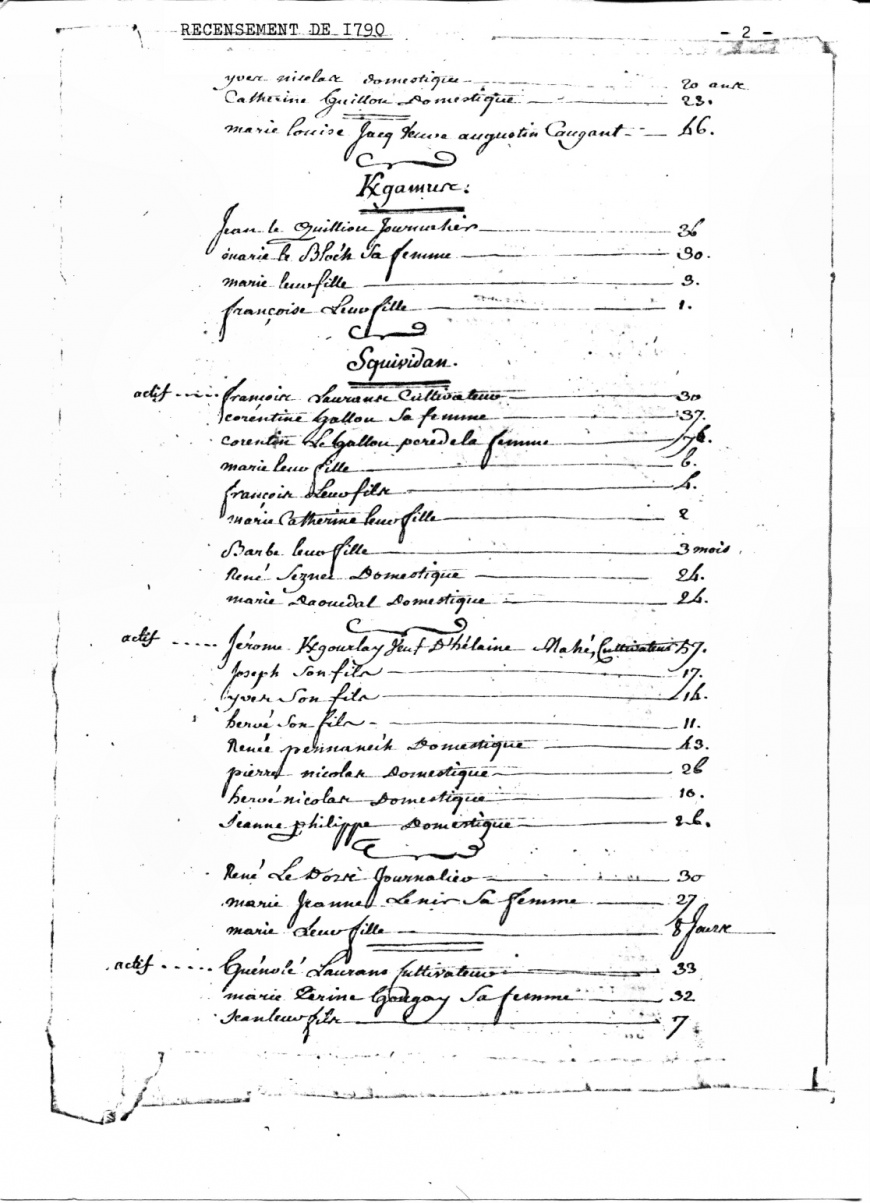 RECENSEMENT DE I790
- 2 -
yves nicolas Domestique 20 ans
Catherine Guillou Domestique 23.
marie louise Jacq Veuve augustin Caugant 46.
Kgamus:
Jean le Quilliou Journalier 36
marie le Bloc'h Sa femme 30.
marie leur fille 3.
françoise Leur fille 1.
Squividan.
actif françois Laurans Cultivateur 30
corentine Gallou Sa femme 37.
corentin Le Gallou pere de la femme 76.
marie leur fille 6.
françois Leur fils 4.
marie Catherine leur fille 2
Barbe leur fille 3 mois
René Seznec Domestique 24.
marie Daouedal Domestique 24.
actif Jérome Kgourlay Veuf D'hélaine Mahé, Cultivateur 57.
Joseph Son fils 17.
yves Son fils 14.
hervé Son fils 11.
Renée pennanech Domestique 43.
pierre nicolas Domestique 26
hervé nicolas Domestique 10.
Jeanne philippe Domestique 26.
René Le Doré Journalier 30
marie Jeanne Lenir Sa femme 27
marie Leur fille 8 Jours
actif Guénolé Laurans Cultivateur 33
marie Perine Gougay Sa femme 32
Jean leur fils 7